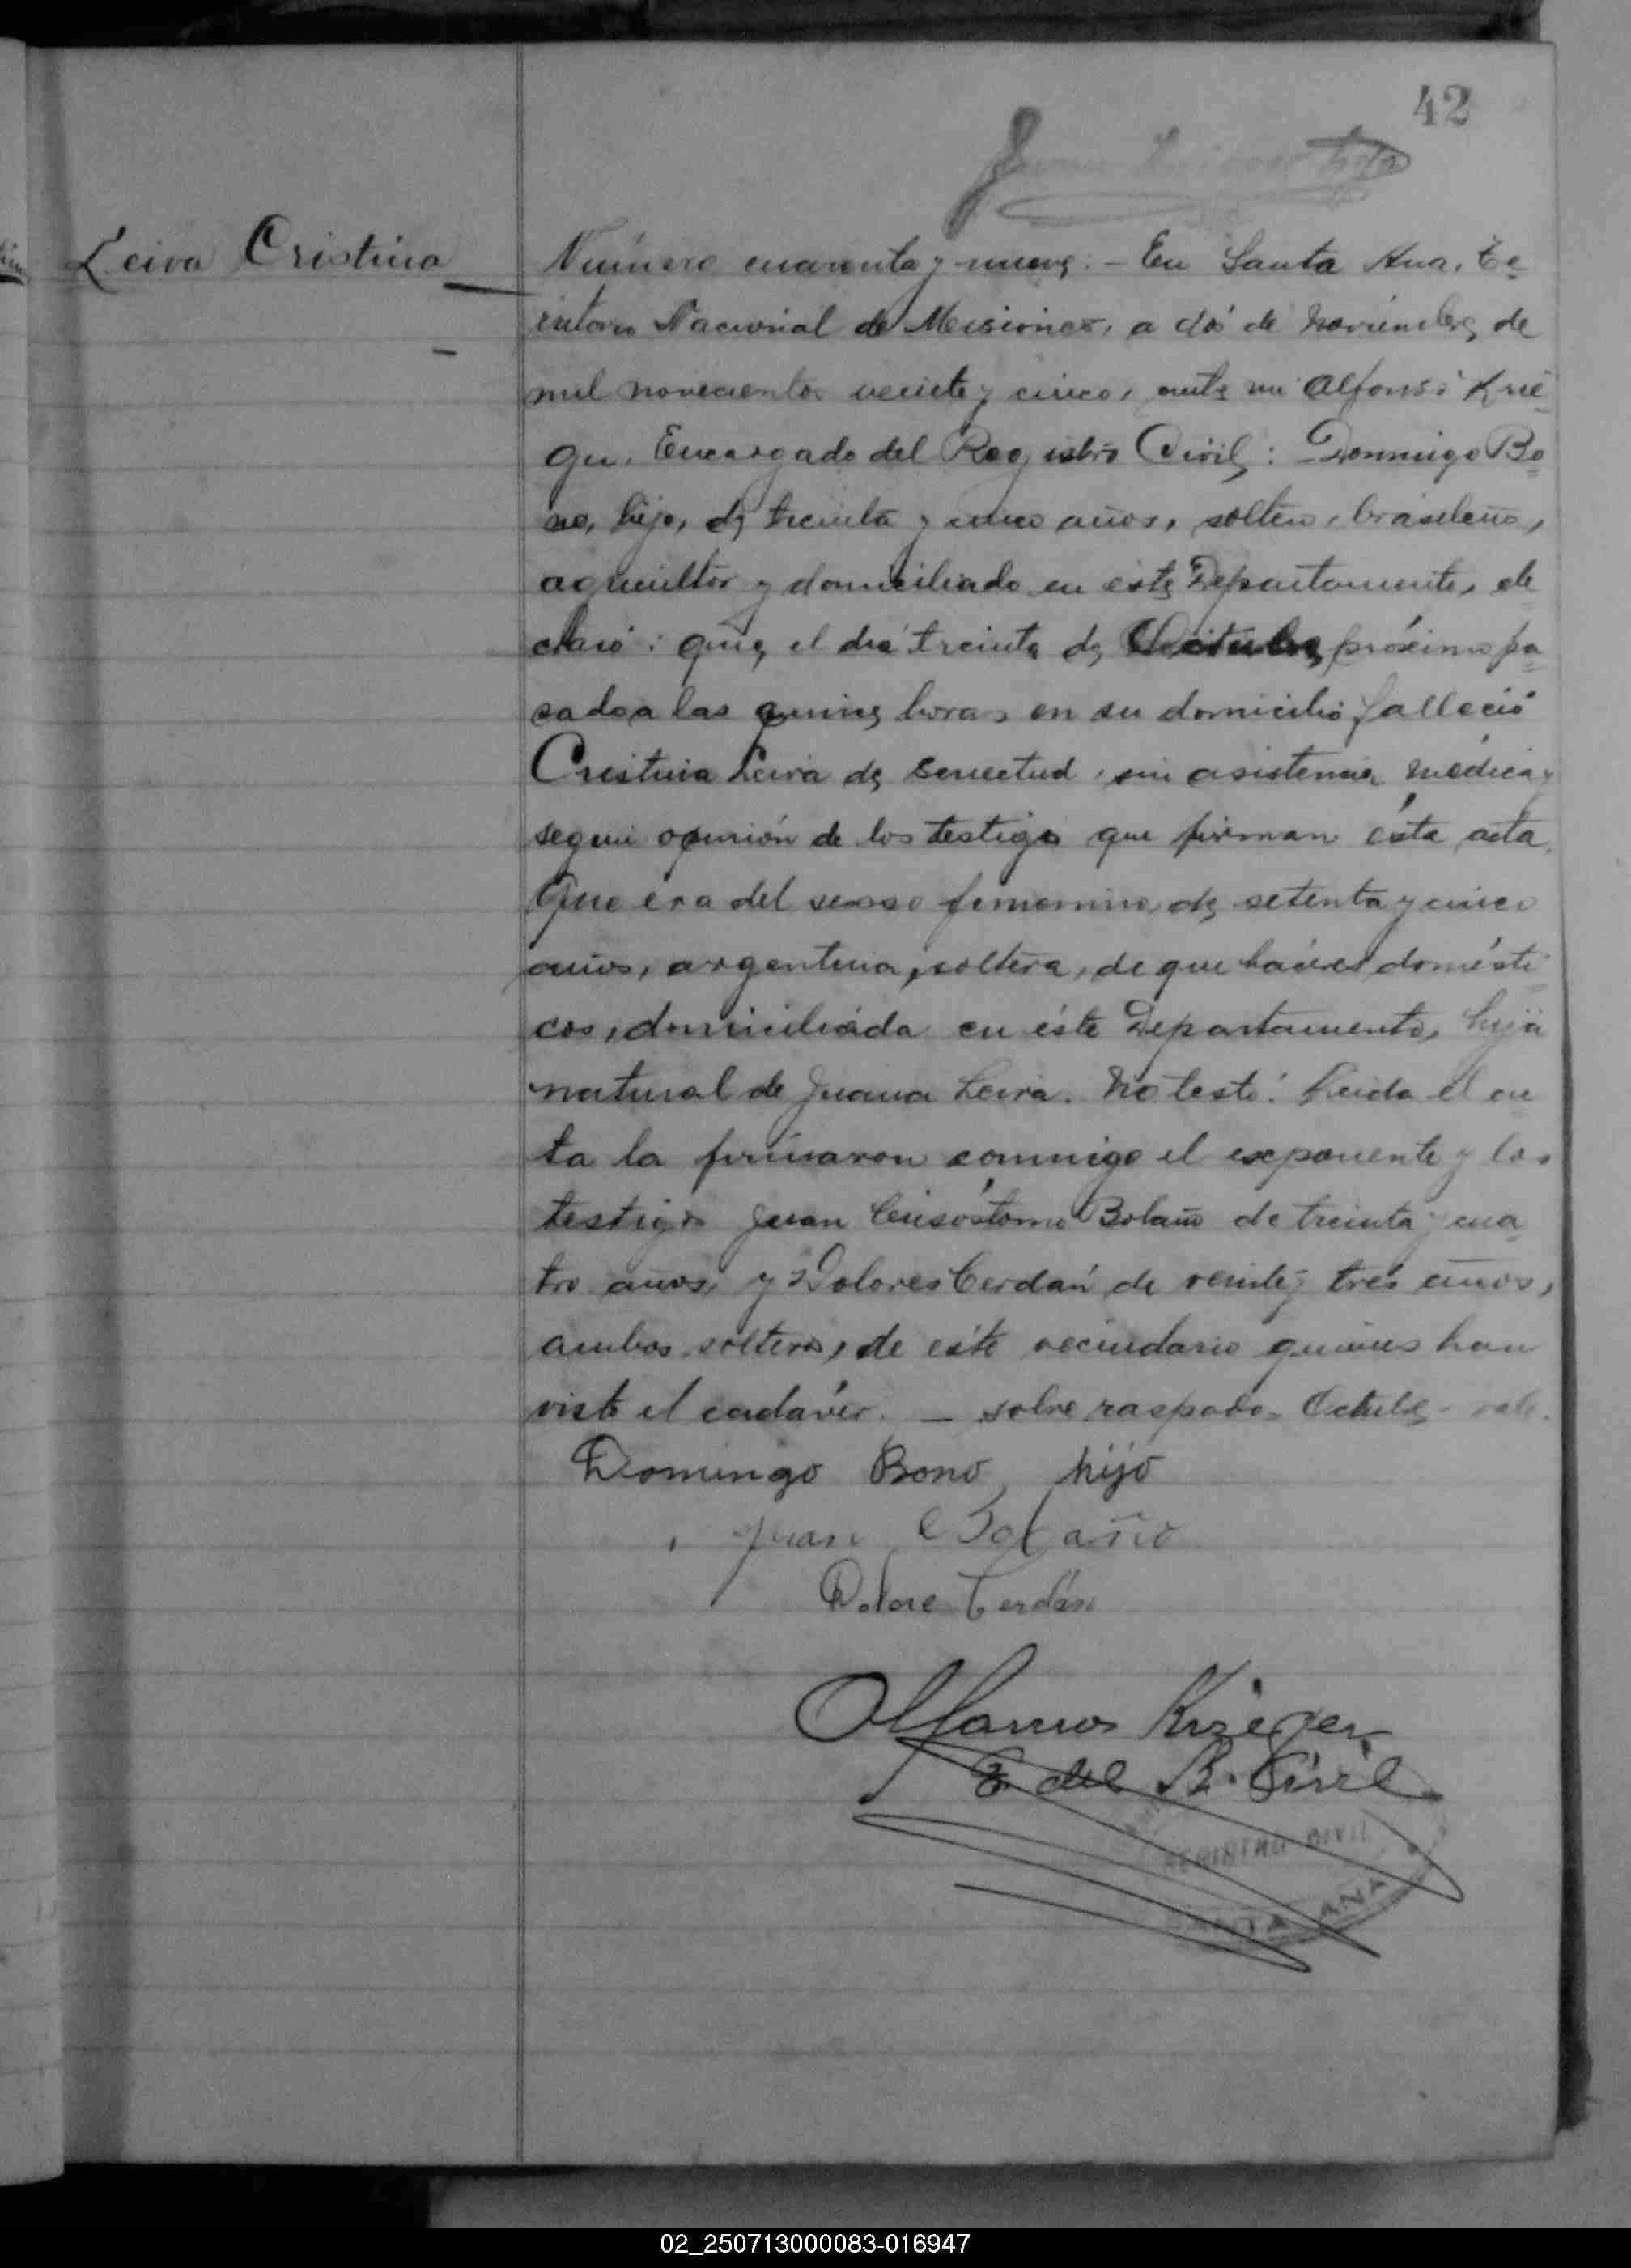 42
Leiva Cristina
Número cuarenta y nueve:- En Santa Ana, Te=
ritorio Nacional de Misiones, a dos de Noviembre de
mil novecientos veinte y cinco, ante mi Alfonso Krie=
ger, Encargado del Registro Civil: Domingo Bo=
no, hijo, de treinta y cinco años, soltero, brasileño,
agricultor y domiciliado en este Departamento, de=
claró: que, el dia treinta de Octubre próximo pa=
sado a las quince horas en su domicilio falleció
Cristina Leiva de senectud, sin asistencia médica y
segun opinión de los testigos que firman ésta acta.
Que era del sexso femenino, de setenta y cinco
años, argentina, soltera, de que haceres domésti=
cos, domiciliada en éste Departamento, hija
natural de Juana Leiva. No testó. Leida el ac
ta la firmaron conmigo el exponente y los
testigos Juan Crisóstomo Bolaño de treinta y cua=
tro años, y Dolores Cerdán de veinte y tres años,
ambos solteros, de este vecindario quienes han
visto el cadáver. — sobre raspado - Octubre - vale.
Domingo Bono, hijo
Juan Bolaño
Dolore Cerdán
Alfonso Krieger
E del R. Civil
REGISTRO CIVIL
SANTA ANA
02_250713000083-016947